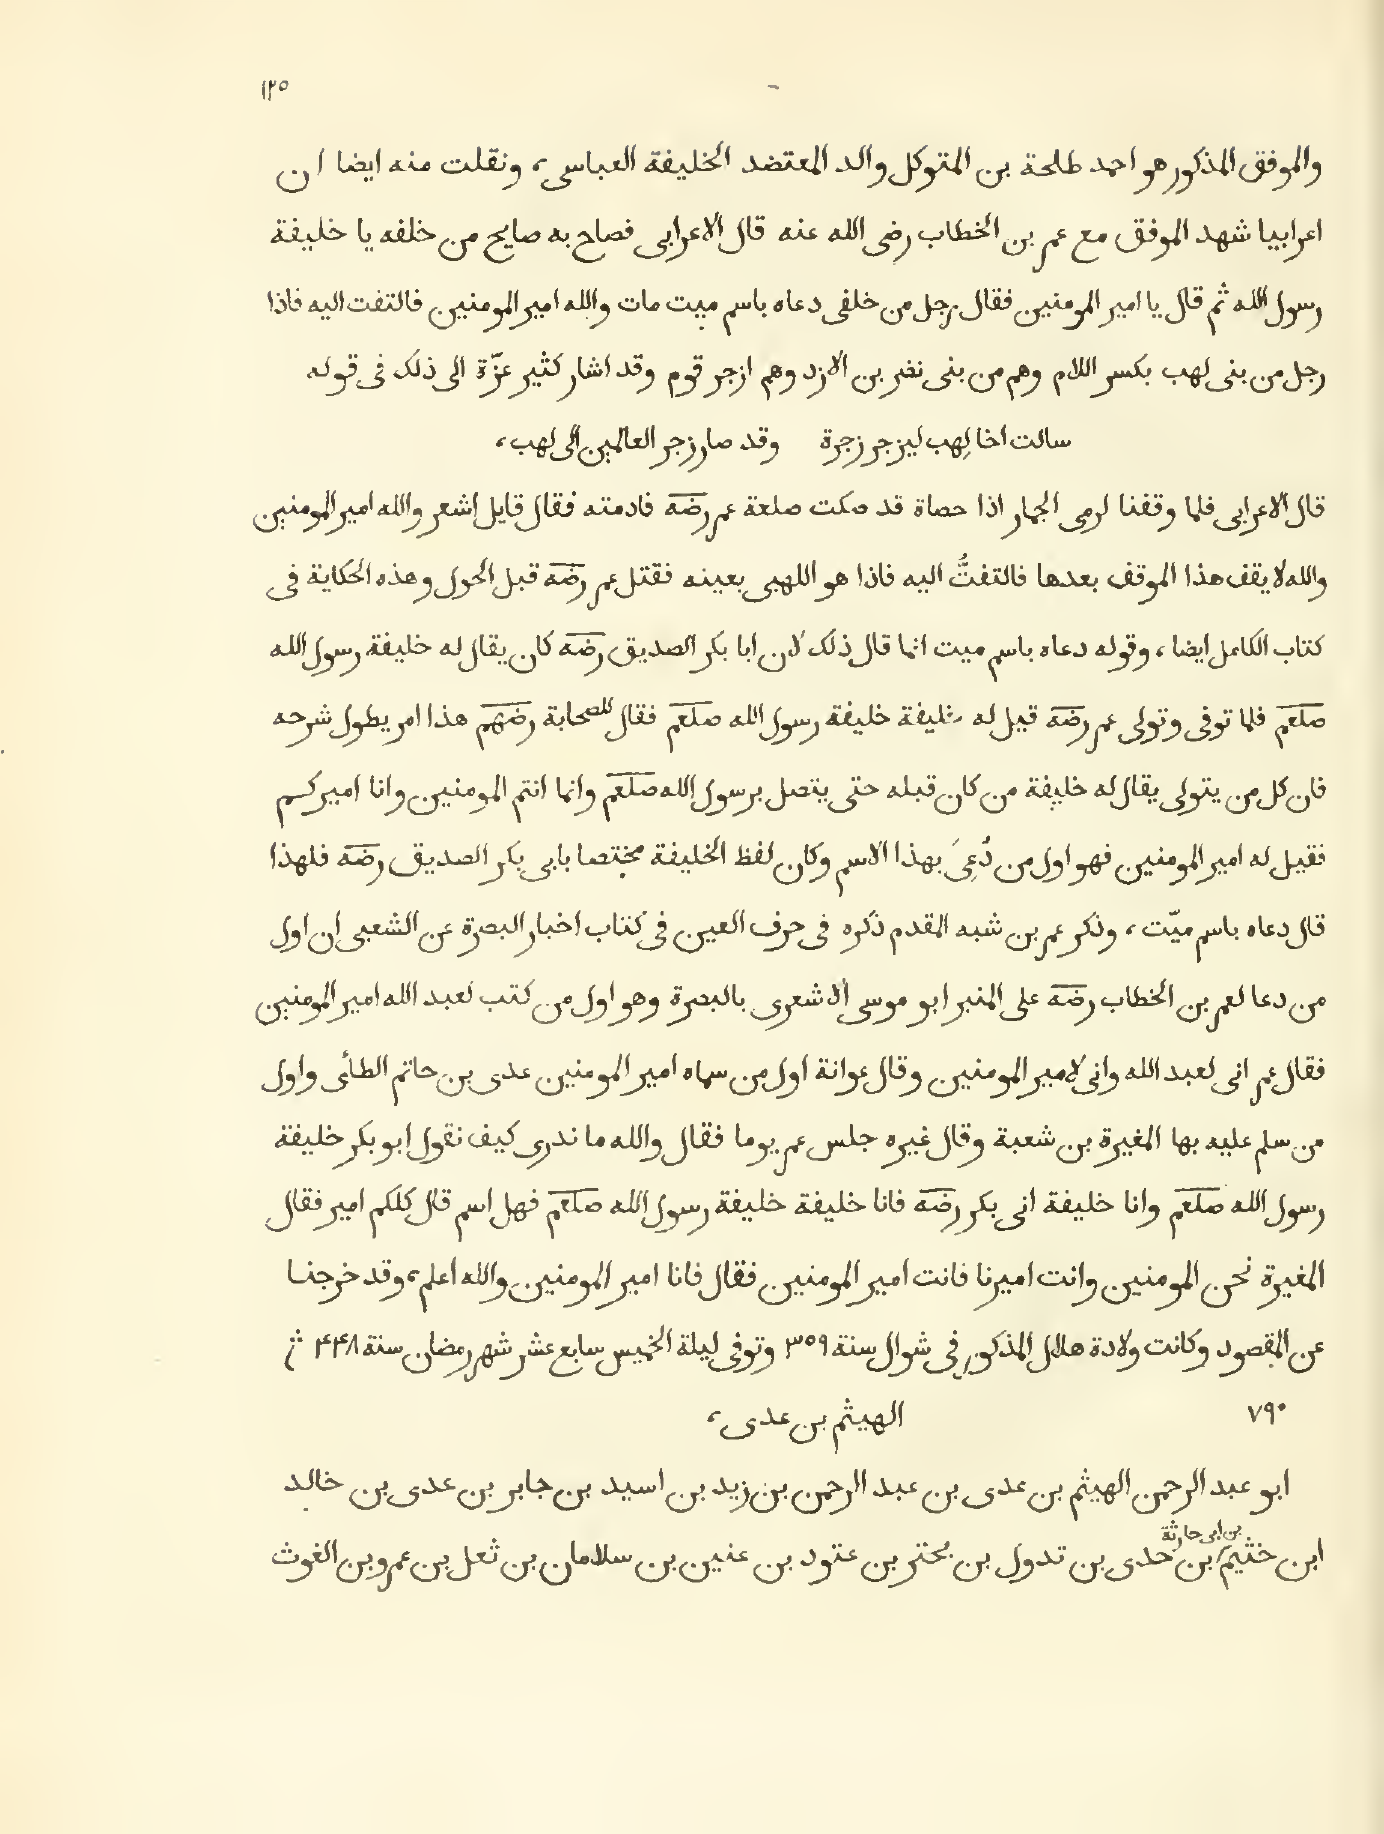 ١٢٥
والموفق المذكور هو احمد طلحة بن المتوكل والد المعتضد الخليفة العباسى، ونقلت منه ايضا ان
اعرابيا شهد الموفق مع عمر بن الخطاب رضى الله عنه قال الاعرابى فصاح به صايح من خلفه يا خليفة
رسول الله ثم قال يا امير المومنين فقال رجل من خلفى دعاه باسم ميت مات والله امير المومنين فالتفت اليه فاذا
رجل من بنى لهب بكسر اللام وهم من بنى نضر بن الازد وهم ازجر قوم وقد اشار كثير عزّة الى ذلك فى قوله
سالت اخا لِهب ليزجر زجرة وقد صار زجر العالمين الى لهب،
قال الاعرابى فلما وقفنا لرمى الجمار اذا حصاة قد صكت صلعة عمر رضه فادمته فقال قايل اشعر والله امير المومنين
والله لا يقف هذا الموقف بعدها فالتفتُّ اليه فاذا هو اللهبى بعينه فقتل عمر رضه قبل الحول وهذه الحكاية فى
كتاب الكامل ايضا، وقوله دعاه باسم ميت انما قال ذلك لان ابا بكر الصديق رضه كان يقال له خليفة رسول الله
صلعم فلما توفى وتولى عمر رضه قيل له خليفة خليفة رسول الله صلعم فقال للصحابة رضهم هذا امر يطول شرحه
فان كل من يتولى يقال له خليفة من كان قبله حتى يتصل برسول الله صلعم وانما انتم المومنين وانا اميركم
فقيل له امير المومنين فهو اول من دُعِىَ بهذا الاسم وكان لفظ الخليفة مختصا بابى بكر الصديق رضه فلهذا
قال دعاه باسم ميّت، وذكر عمر بن شبه المقدم ذكره فى حرف العين فى كتاب اخبار البصرة عن الشعبى ان اول
من دعا لعمر بن الخطاب رضه على المنبر ابو موسى الاشعرى بالبصرة وهو اول من كتب لعبد الله امير المومنين
فقال عمر انى لعبد الله وانى لامير المومنين وقال عوانة اول من سماه امير المومنين عدى بن حاتم الطائى واول
من سلم عليه بها المغيرة بن شعبة وقال غيره جلس عمر يوما فقال والله ما ندرى كيف نقول ابو بكر خليفة
رسول الله صلعم وانا خليفة ابى بكر رضه فانا خليفة خليفة رسول الله صلعم فهل اسم قال كلكم امير فقال
المغيرة نحن المومنين وانت اميرنا فانت امير المومنين فقال فانا امير المومنين والله اعلم، وقد خرجنا
عن المقصود وكانت ولادة هلال المذكور فى شوال سنة ٣٥٩ وتوفى ليلة الخميس سابع عشر شهر رمضان سنة ٤٤٨
٧٩٠ الهيثم بن عدى،
ابو عبد الرحمن الهيثم بن عدى بن عبد الرحمن بن زيد بن اسيد بن جابر بن عدى بن خالد
بن ابى حارثة
ابن خثيم بن حدى بن تدول بن بحتر بن عتود بن عنين بن سلامان بن ثعل بن عمرو بن الغوث